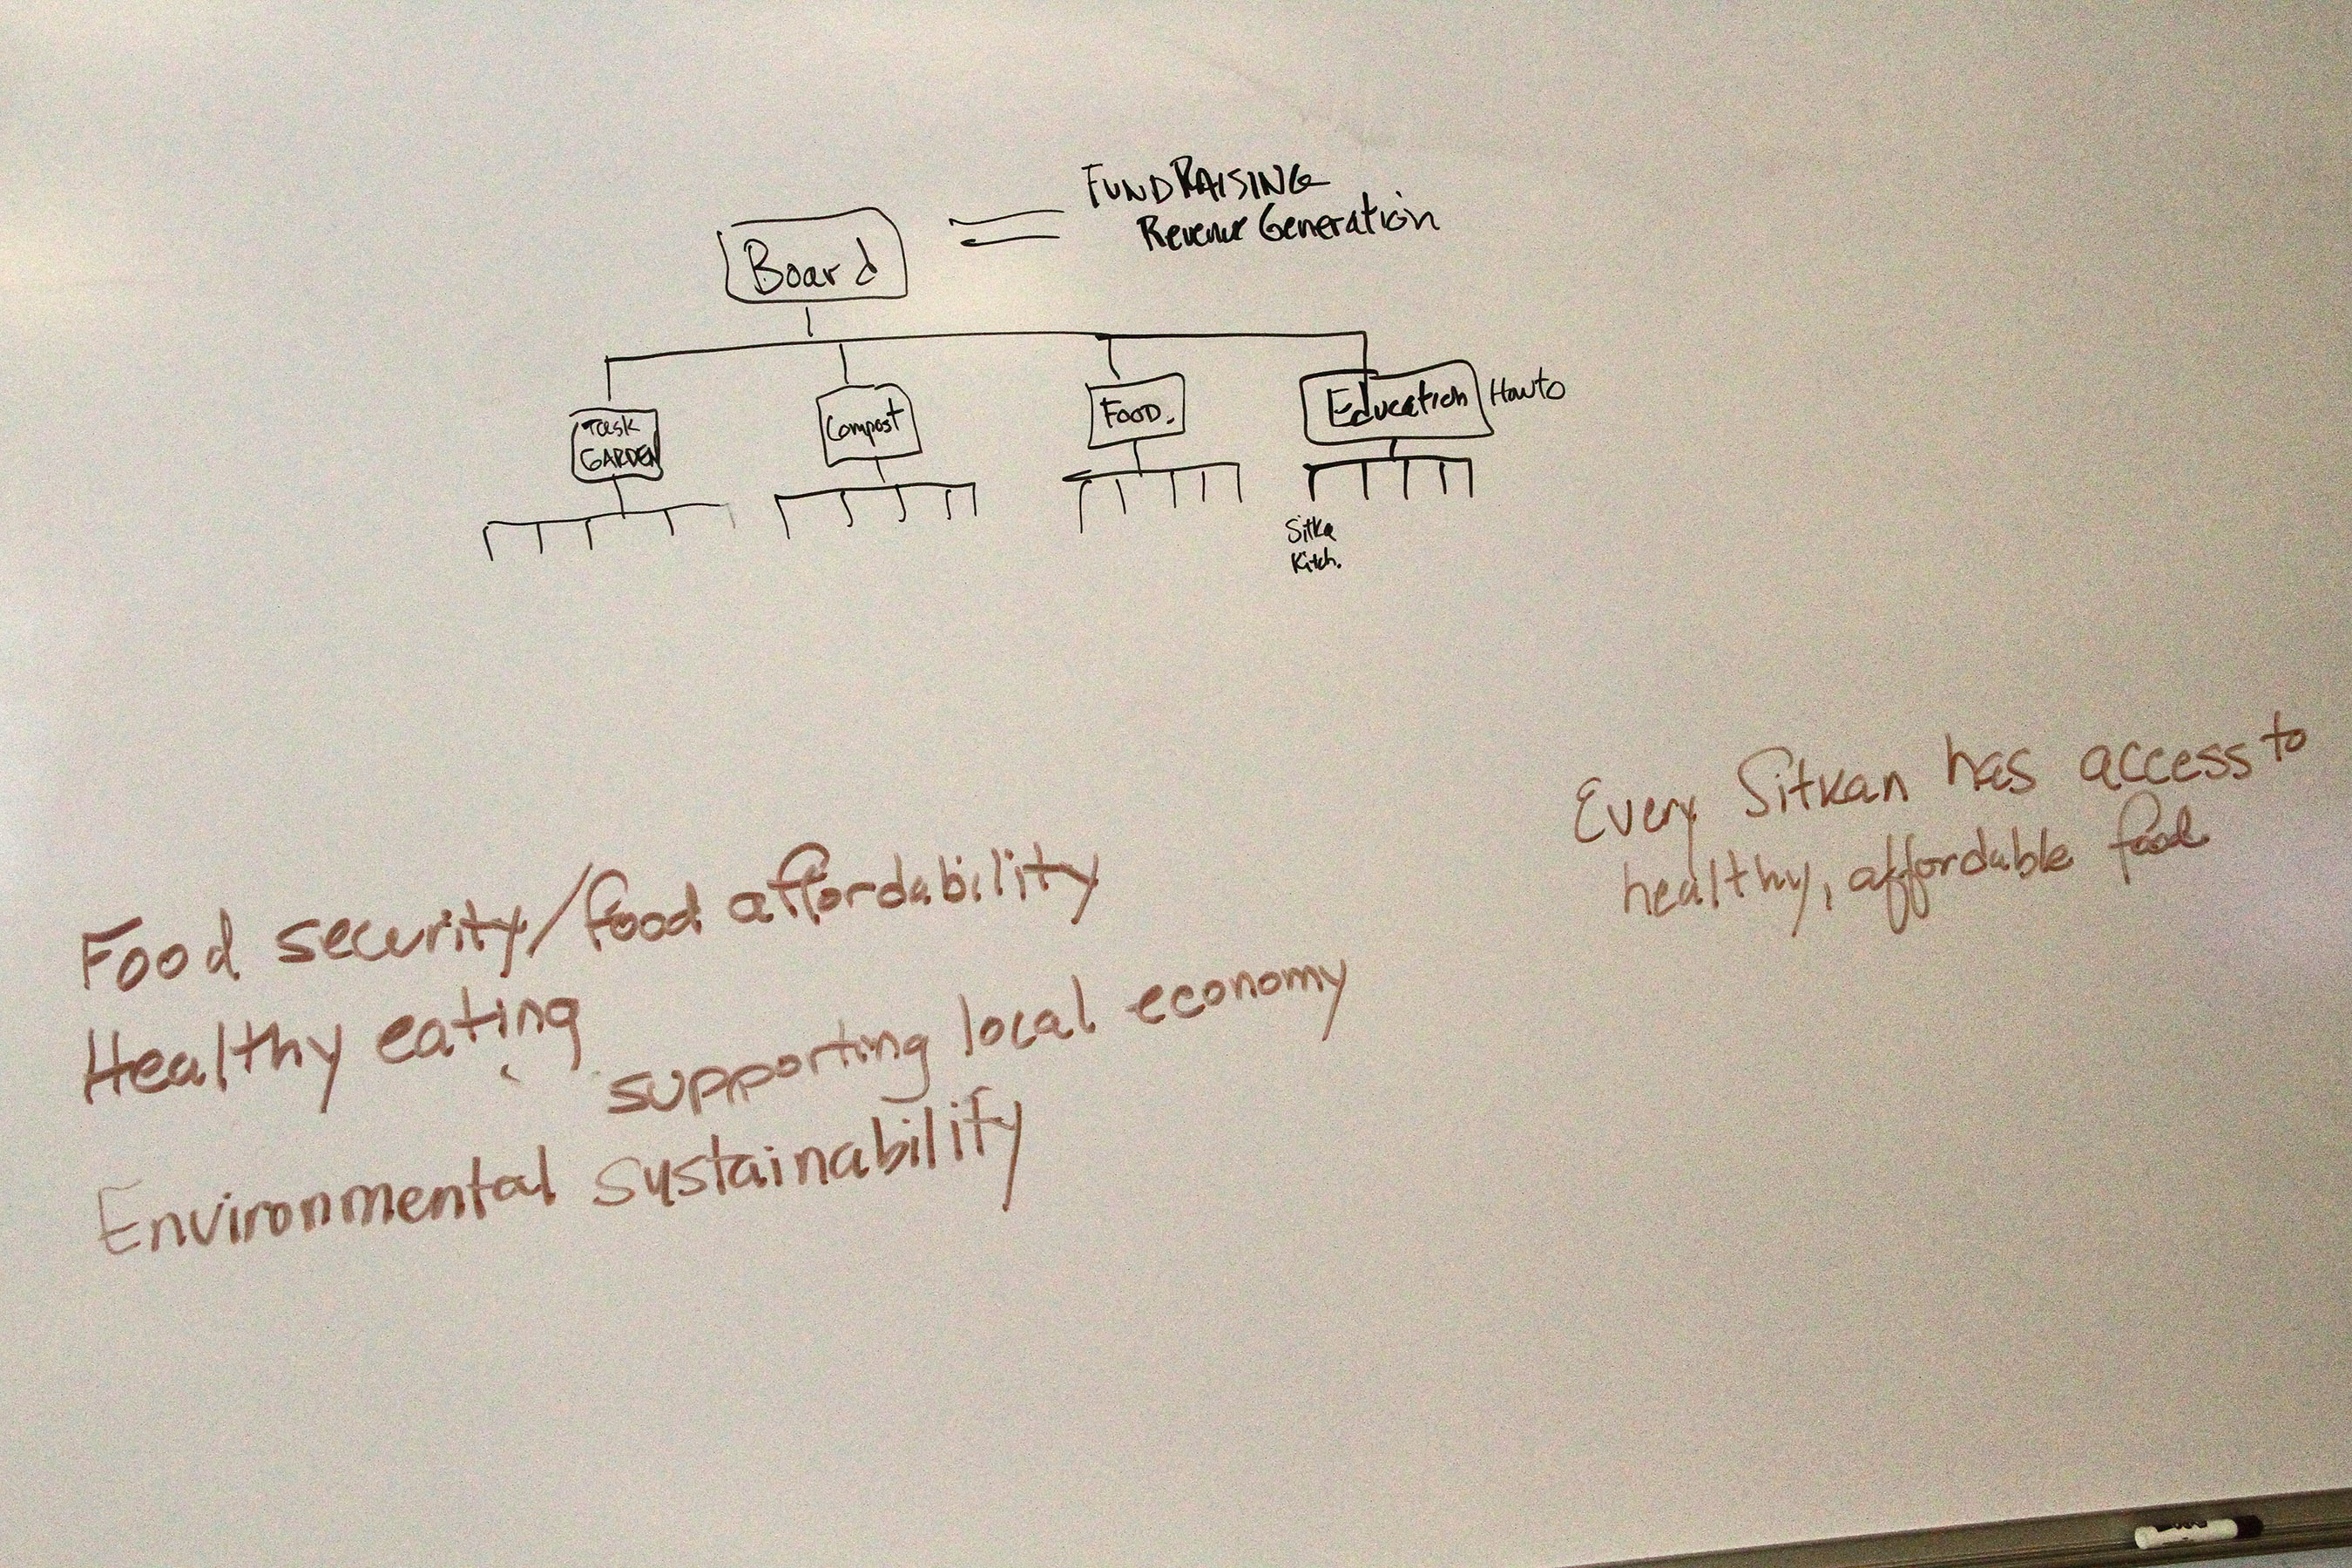 FUNDRAISING
Revenue Generation
Board
Task
GARDEN
Compost
FOOD.
Education
How to
Sitka
Kitch.
Every Sitkan has access to
healthy, affordable food
Food security/food affordability
Healthy eating
supporting local economy
Environmental sustainability